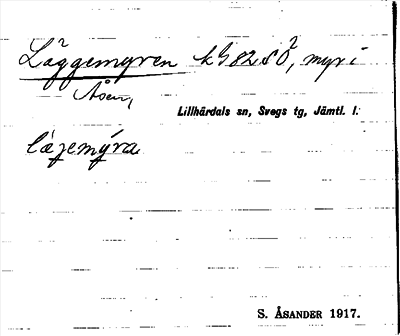 Läggemyren k 982 SÖ, myr i
Åsen,
Lillhärdals sn, Svegs tg, Jämtl. l.
S. ÅSANDER 1917.